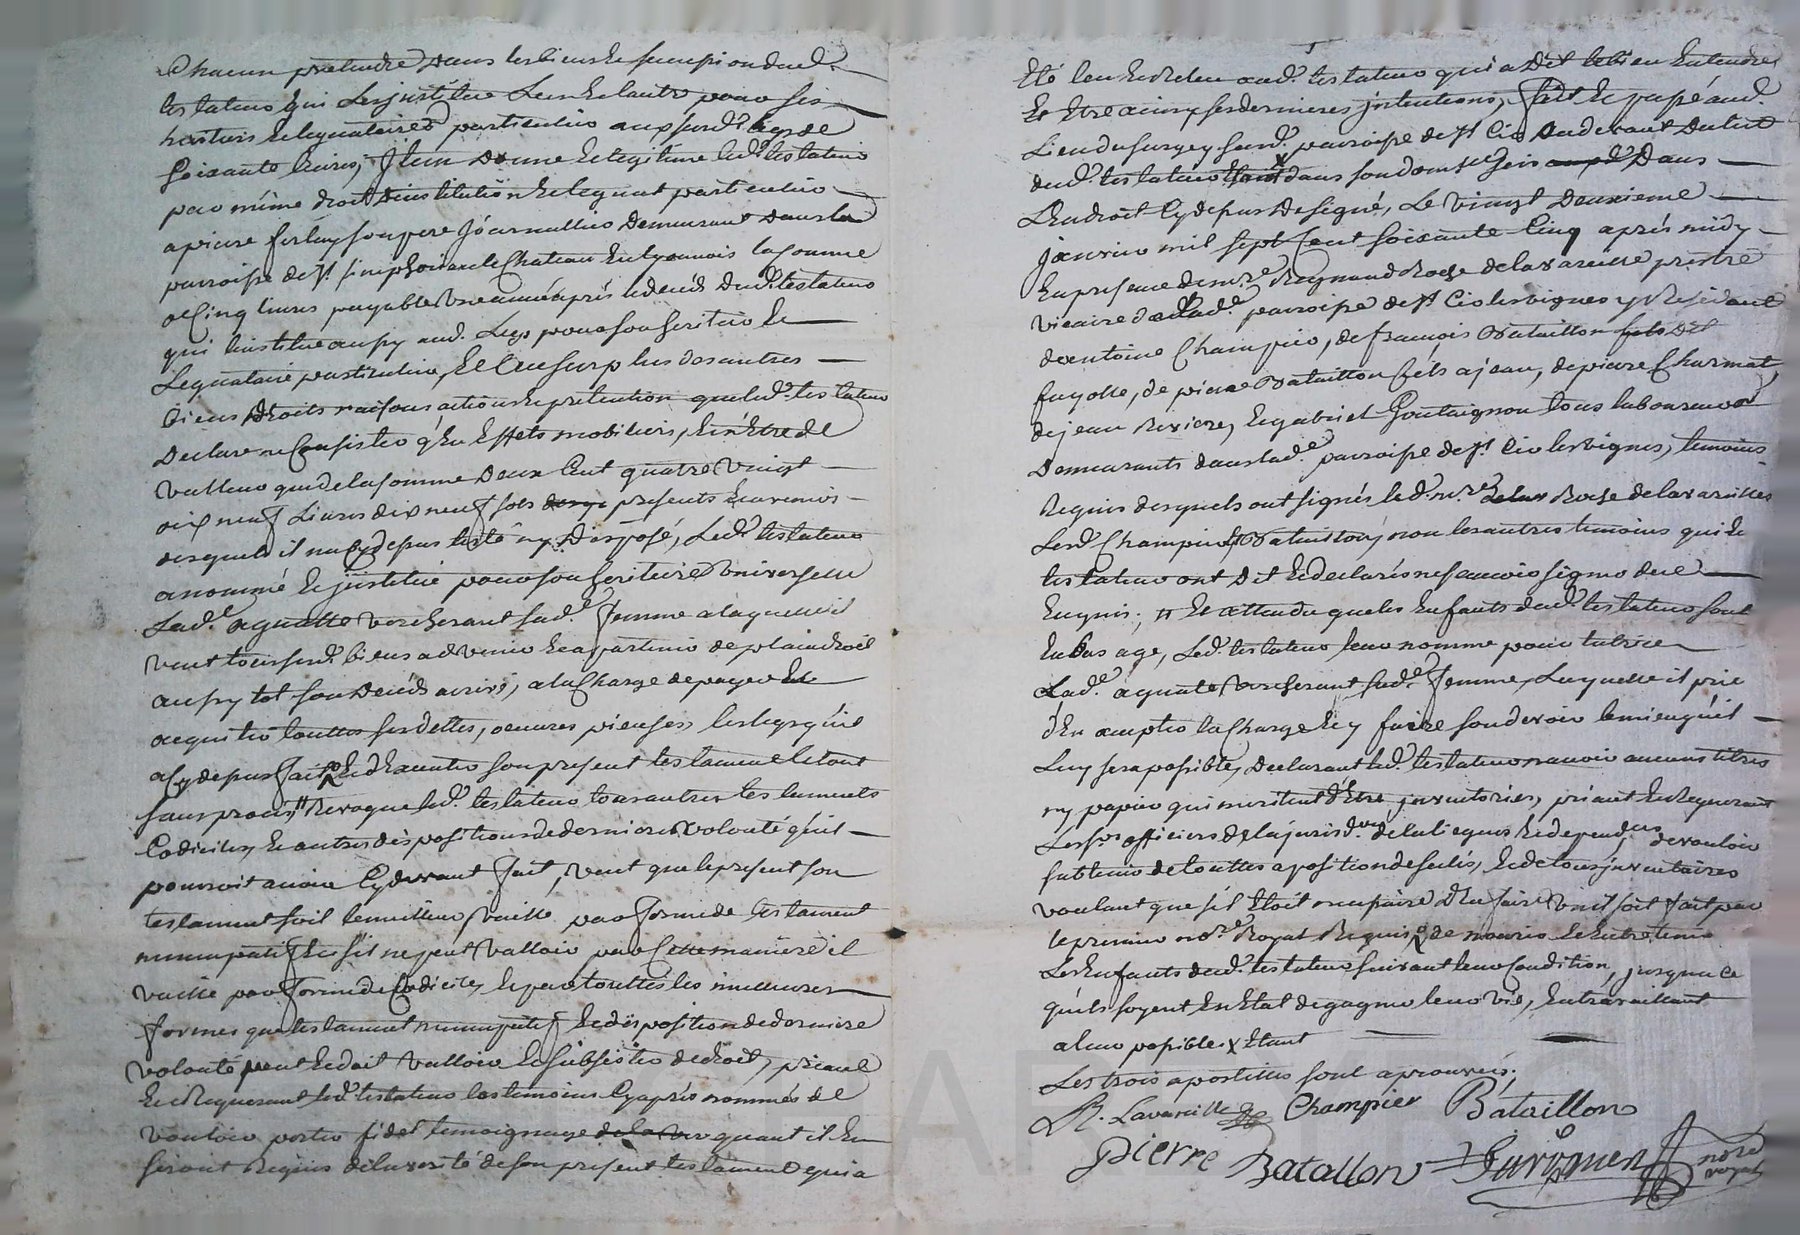 chacun prétendre dans les biens et succession dud.
testateur qui les jnstitue l'un et l'autre pour ses
heritiers et legnataires particuliers auxsusd. legs de
soixante livres, Jtem donne et legitime led. testateur
par même droit d'institution et legnat particulier
a pierre son pere Journallier demeurant dans la
parroisse de st. simphorien le Chateau en Lyonnois la somme
de Cinq livres payable une année après le decés dud. testateur
qui l'institue aussy aud. Legs pour son heritier et
Legnataire particulier, Et Au surplus des autres
biens droits raisons actions et pretention que led. testateur
declare ne Consister q'En Effets mobiliers, Et n'Etre de
valleur que de la somme deux Cent quatre vingt
dix neuf Livres dix neuf sols presents et avenir
desquels il n'a Cy depus testé ny disposé, Led. testateur
a nommé et jnstitue pour son heritiere universelle
Lad. aguatte vercherant sad. femme a laquelle il
veut tous susd. biens advenir et apartenir de plain droit
aussy tot son deceds arrivé, a la Charge de payer et
acquitter touttes ses dettes, oeuvres pieuses, les legs q'il
a Cy depus fait et d'Executer son present testament le tout
sans procés, Revoque led. testateur tous autres testaments
Codiciles, et autres dispositions de derniere volonté q'il
pourroit avoir Cy devant fait, veut que le present son
testament soit le meilleur, vaille par forme de testament
nuncupatif Et s'il ne peut valloir par Cette maniere il
vaille par forme de Codicile, et par touttes les meilleures
formes que testament nuncupatif et disposition de derniere
volonté peut et doit valloir et subsister de droit, priant
Et Requerant led. testateur les temoins Cy après nommés de
vouloir porter fidel temoignage quand il En
seront Requis de la verité de son present testament qui a
Eté leu et Releu aud. testateur qui a dit le bien Entendre,
Et Etre ainsy ses dernieres jntentions, fait et passé aud.
Lieu du surgey susd. parroisse de st. Cir au devant du lit
dud. testateur dans son domicile Dans
L'endroit Cy depus designé, Le vingt deuxieme
janvier mil sept Cent soixante Cinq après midy
En presence de mre. Reymond Roche de lavareille prestre
vicaire de lad. parroisse de st. Cir les vignes y Residant
d'antoine Champier, de françois Bataillon fils dit
fayolle, de pierre Bataillon fils a jean, de pierre Charmat,
de jean Riviere, et gabriel Goutaignon tous laboureurs
Demeurants dans lad. parroisse de st. Cir les vignes, temoins
Requis desquels ont signés led. mre. Roche de lavareilles
Lesd. Champier et Bataillon, non les autres temoins qui et
testateur ont dit et declarés ne sçavoir signer de ce
Enquis; # et attendu que les Enfants dud. testateur sont
En bas age, Led. testateur leur nomme pour tutrice
Lad. aguatte vercherant sad. femme, Laquelle il prie
d'En accepter la Charge et y faire son devoir le mieux q'il
Luy sera possible, declarant led. testateur n'avoir aucuns titres
ny papier qui meritent d'Etre jnventories, priant et Requerant
Les srs. officiers de la jurisdon. de la liegue et dependces de vouloir
s'abstenir de touttes aposition de scelés, et de tous jnventaires
voulant que s'il Etoit necessaire d'En faire un il soit fait par
le premier nore. Royal Requis & de nourir et Entretenir
Les Enfants dud. testateur suivant leur Condition, jusqu'a ce
qu'ils soyent En Etat de gagner leur vie, En travaillant
a leur possible x Etant
Les trois apostilles sont aprouvées;
R. Lavareille Champier Bataillon
pierre Batallon nore royal